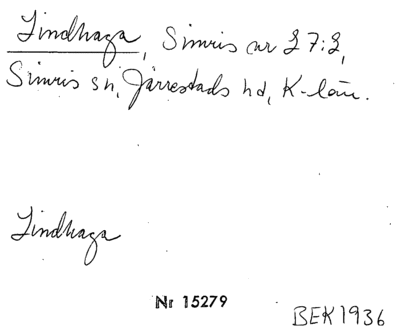 Lindhaga, Simris nr 27:2,
Simris sn, Järrestads hd, K-län.
Lindhaga
Nr 15279
BEK 1936